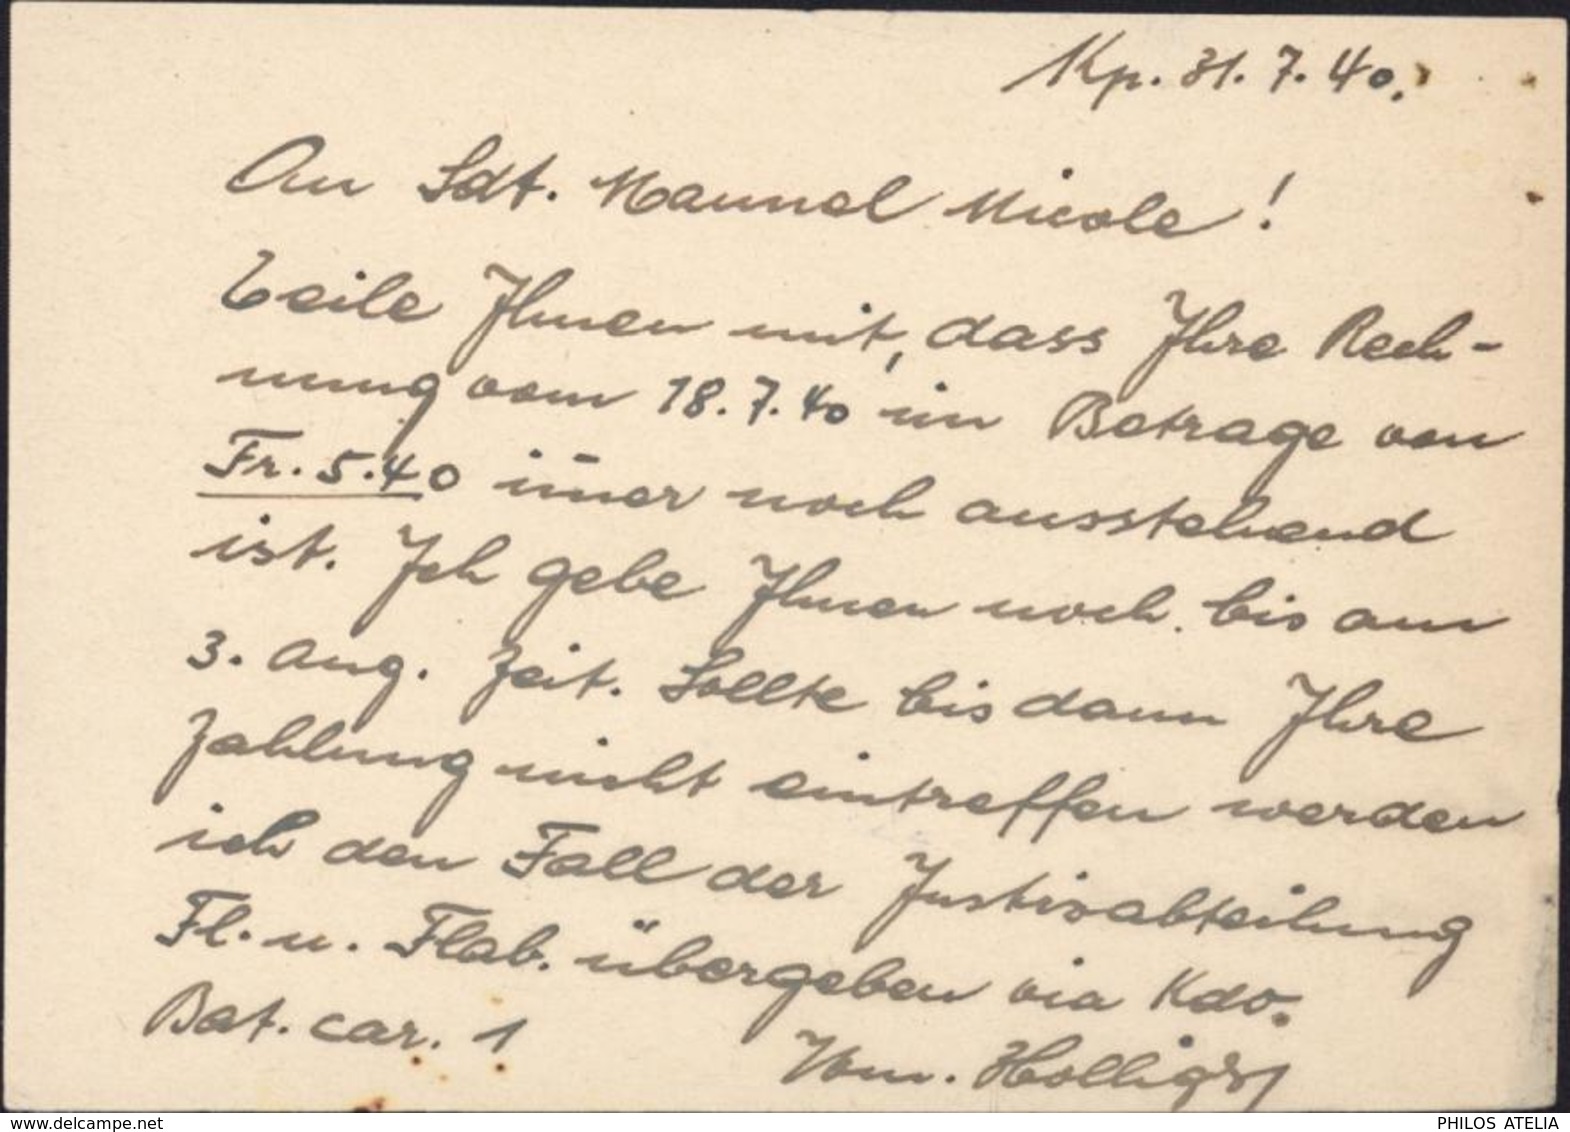 Kp. 31. 7. 40.
An Sdt. Mannel Nicole!
Teile Ihnen mit, dass Ihre Rech-
nung vom 18.7.40 im Betrage von
Fr. 5.40 im̄er noch ausstehend
ist. Ich gebe Ihnen noch bis am
3. Aug. Zeit. Sollte bis dann Ihre
Zahlung nicht eintreffen werden
ich den Fall der Justizabteilung
Fl. u. Flab. übergeben via Kdo.
Bat. car. 1
delcampe.net
PHILOS ATELIA